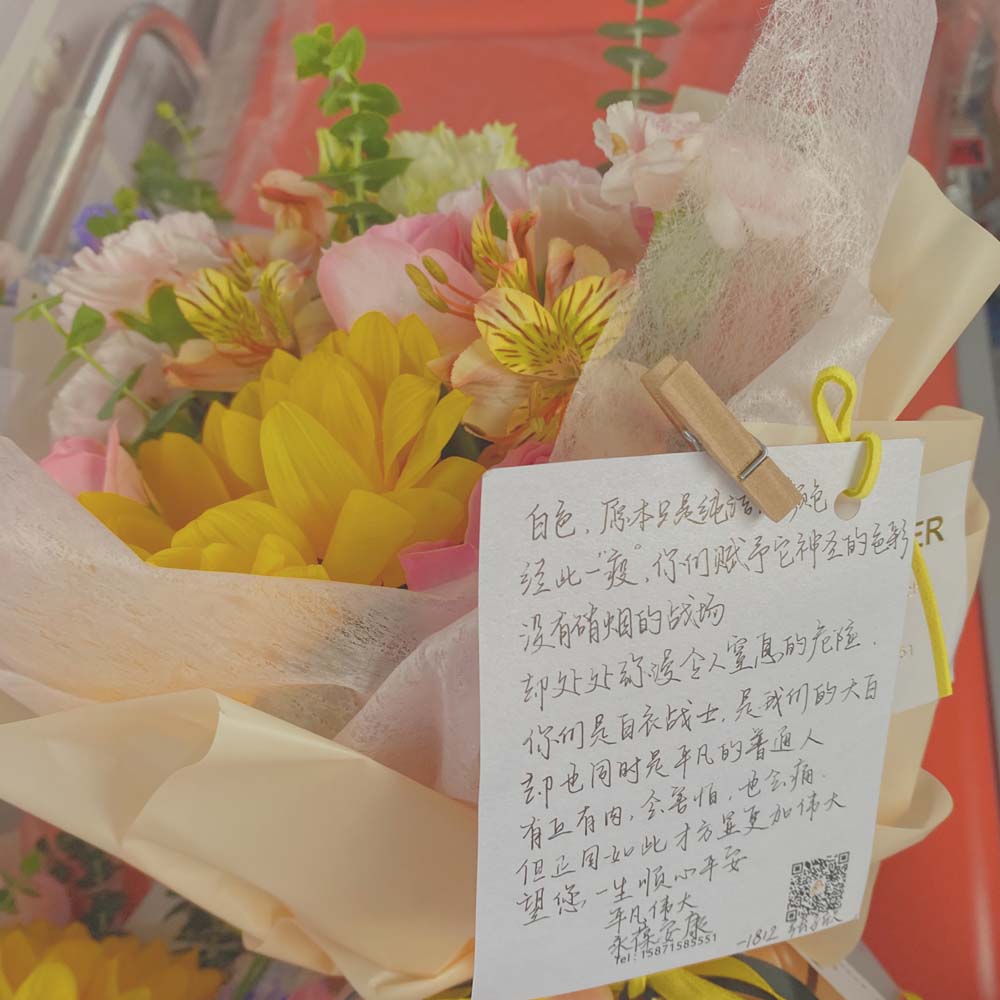 白色，原本只是纯洁的颜色
经此一"疫"，你们赋予它神圣的色彩
没有硝烟的战场
却处处弥漫令人窒息的危险．
你们是白衣战士，是我们的大白
却也同时是平凡的普通人
有血有肉，会害怕，也会痛．
但正因如此才方显更加伟大
望您一生顺心平安
平凡伟大
永葆安康
Tel：15871585551
-1812
ER
51